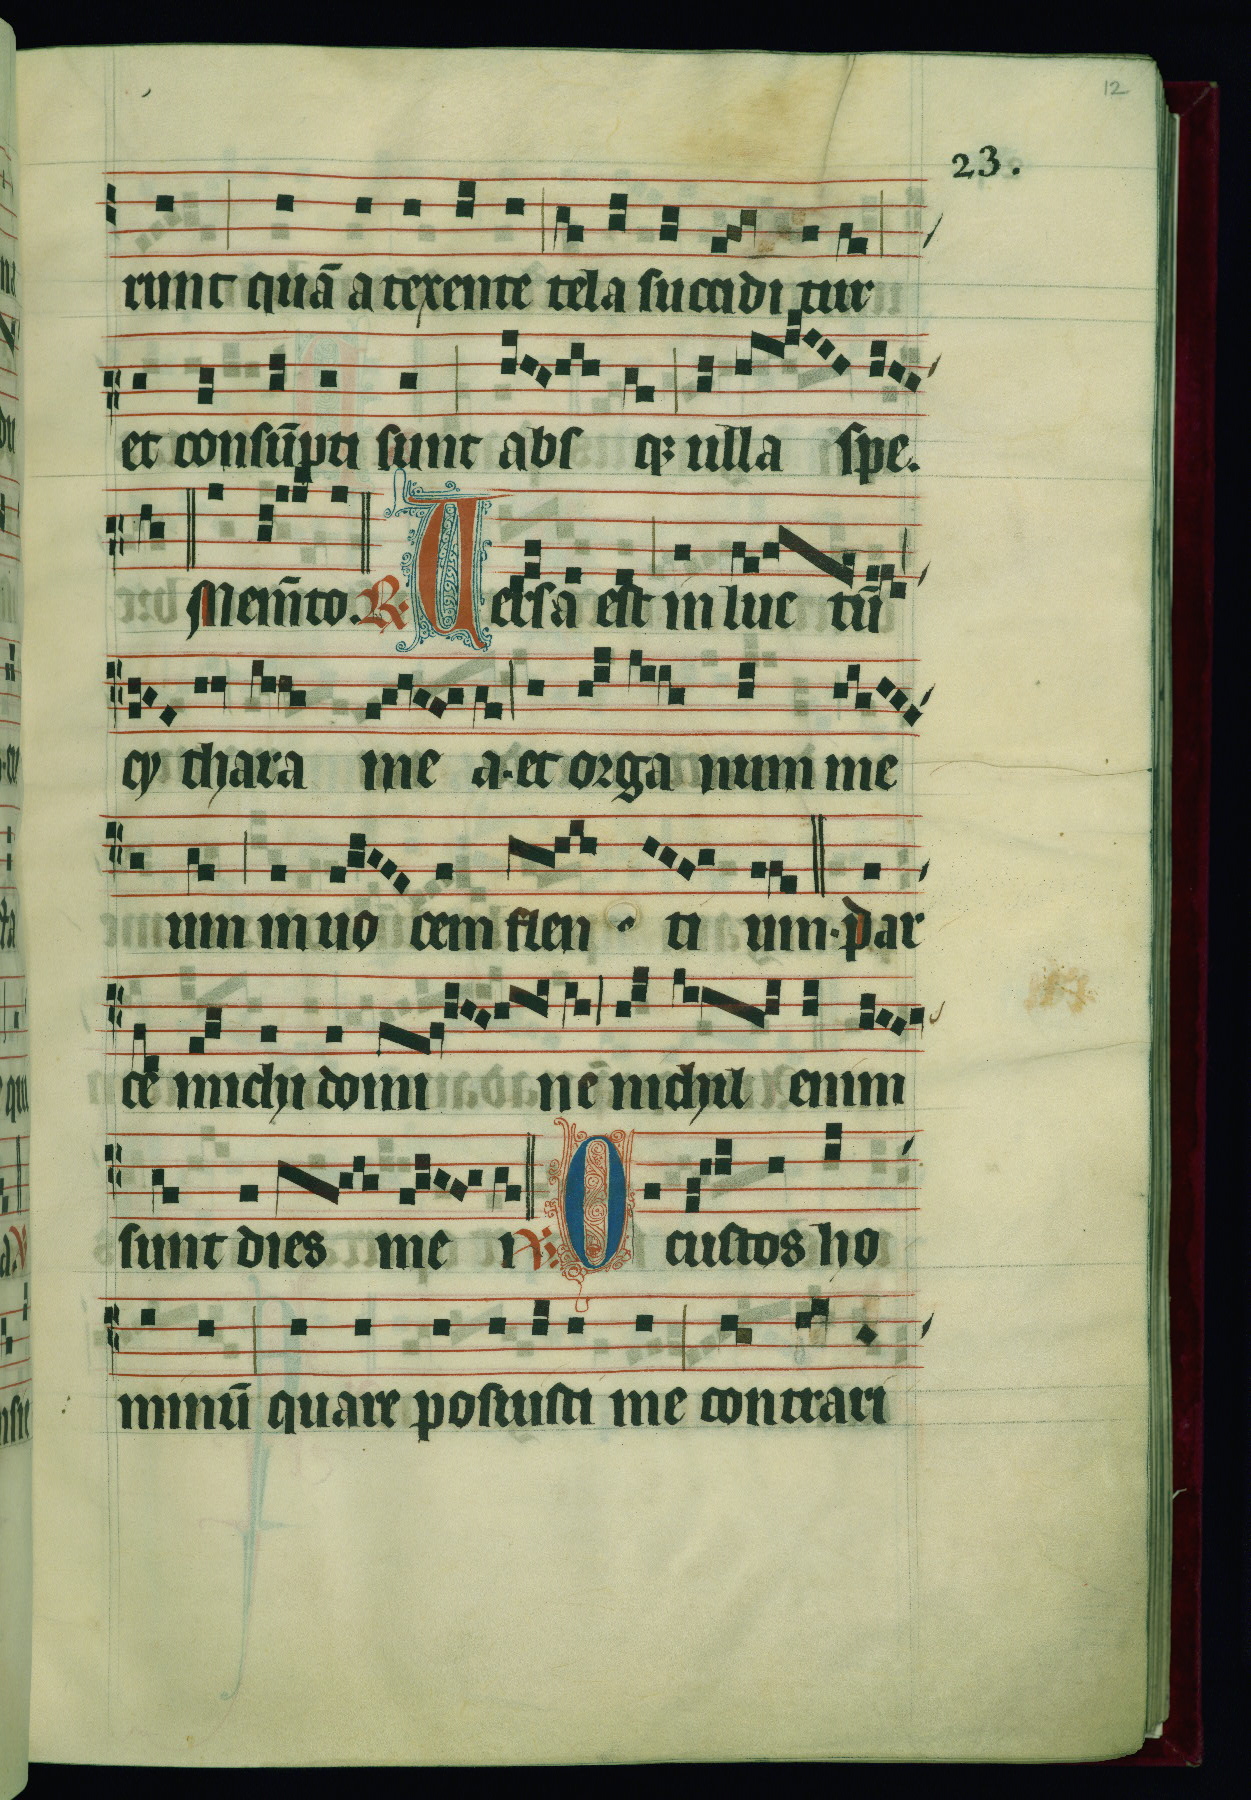 12
23.
runt quā a texente tela succidi tur
et consūpti sunt abs qꝫ ulla spe.
Mem̄to. ℟ Uersa est in luc tū
cy thara me a. et orga num me
um in uo cem flen ti um. par
ce michi domi ne nichil enim
sunt dies me i ℣ O custos ho
minū quare posuisti me contrari